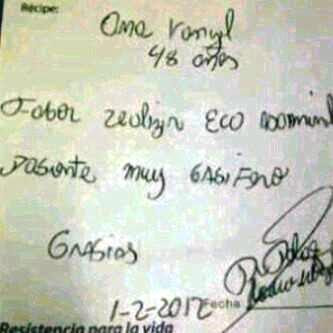 Récipe:
Oma Rangl
48 años
Fabor zealizar ECO abominl
Pasiente muy GASiFero
GRASiAS
1-2-2012 Fecha
Resistencia para la vida